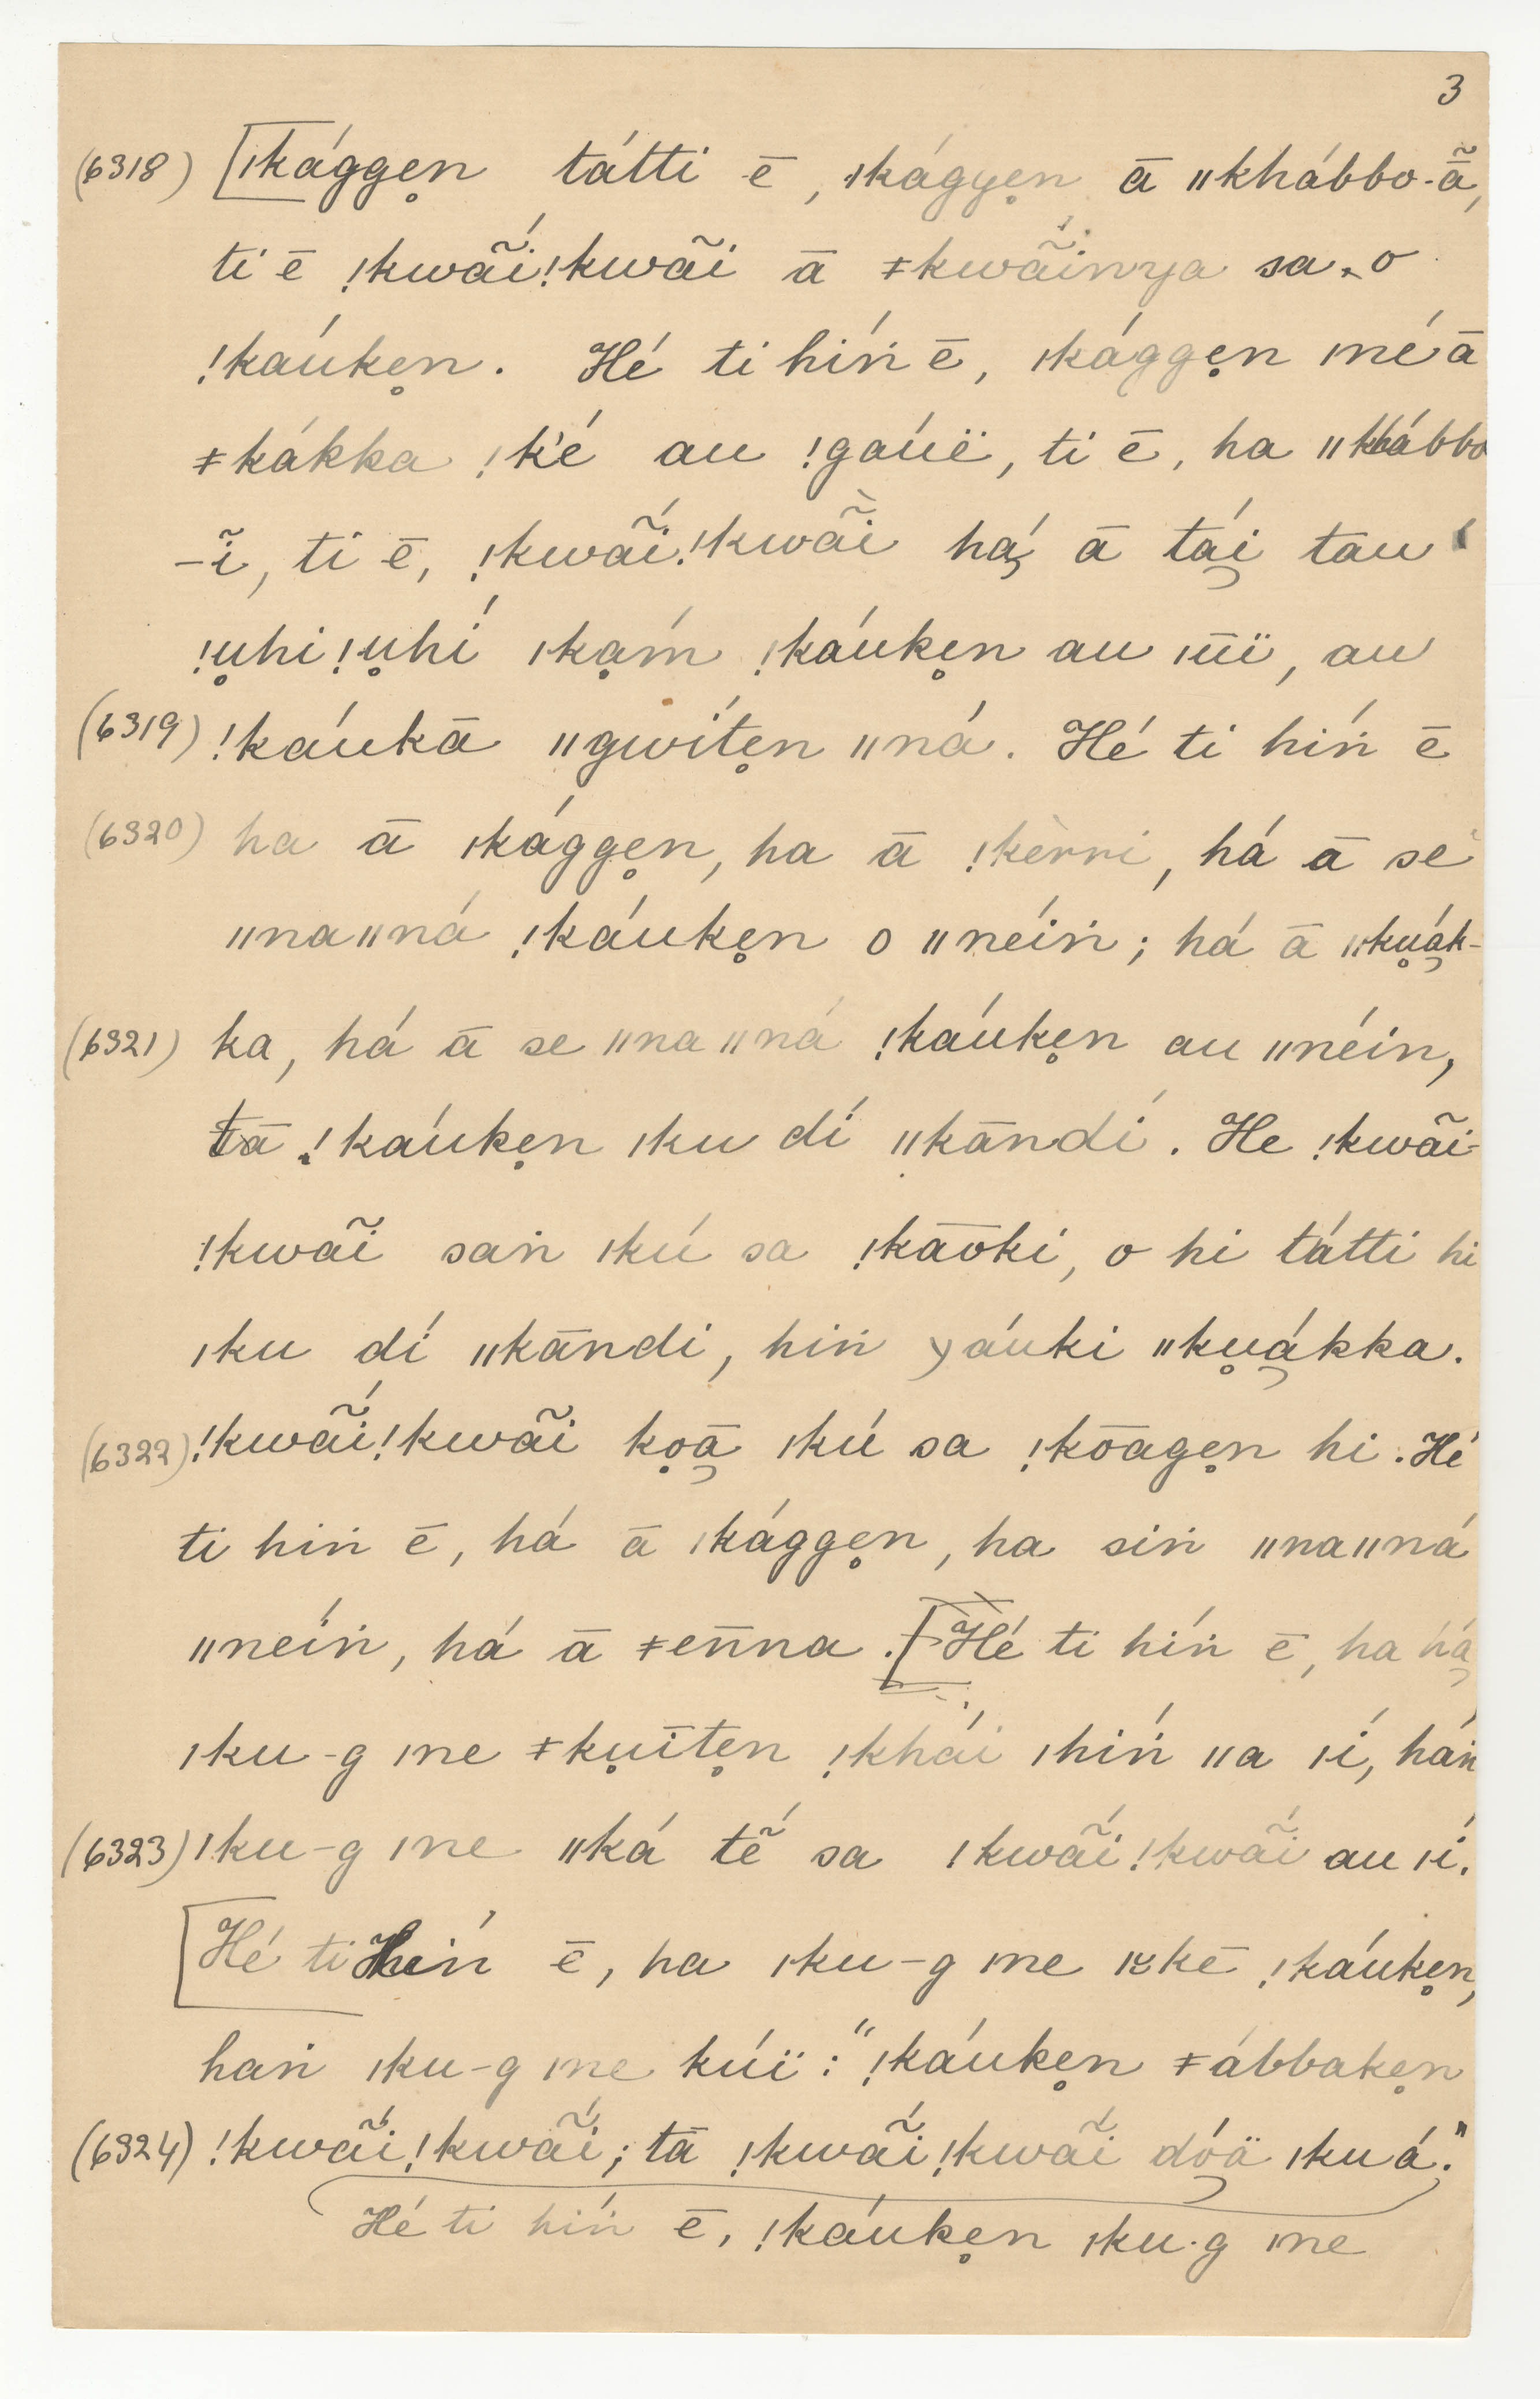 3
(6318) [ǀkággen̥ tátti ē, ǀkággen̥ ā ǁkhábbo-ā̃,
ti ē ǃkwã́iǃkwãi ā ǂkwãínya sa, o
ǃkáuken̥. Hé ti hiń ē, ǀkággen̥ ǀné ā
ǂkákka ǃk'é au ǃgáuë, ti ē, ha ǁkhábbo
-ĩ, ti ē, ǃkwã́iǃkwãi há̡ ā tá̡i tau
ǃu̥hiǃu̥hí ǀkḁḿ ǃkáuken̥ au ǀṻï, au
(6319) ǃkáukā ǁgwíten̥ ǁná. Hé ti hiń ē
(6320) ha ā ǀkággen̥, ha ā ǃkèrri, há ā sé
ǁnaǁná ǃkáuken̥ o ǁnéiṅ; há ā ǁku̥á̡k-
(6321) ka, há ā se ǁnaǁná ǃkáuken̥ au ǁnéin,
tā ǃkáuken̥ ǀku dí ǁkāndí. He ǃkwãi-
ǃkwãi saṅ ǀkú sa ǃkāokí, o hi tátti hi
ǀku dí ǁkāndi, hiṅ yáuki ǁku̥á̡kka.
(6322) ǃkwã́iǃkwãi ko̥ā̡ ǀkú sa ǃkōagen̥ hi. Hé
ti hiṅ ē, há ā ǀkággen̥, ha siṅ ǁnaǁná
ǁnéiṅ, há ā ǂen̄na. [Hé ti híṅ ē, ha há̡
ǀku-g ǀne ǂku̥īten̥ ǃkhái ǀhiń ǁa ǀí, háṅ
(6323) ǀku-g ǀne ǁká tẽ́ sa ǃkwã́iǃkwã́i au ǀí.
[Hé ti hiń ē, ha ǀku-g ǀne ǀkē ǃkáuken̥,
haṅ ǀku-g ǀne kúï: "ǃkáuken̥ ǂábbaken̥
(6324) ǃkwã́iǃkwã́i; tā ǃkwã́iǃkwã́i dó̡ä ǀku á."
Hé ti hiń ē, ǃkáuken̥ ǀku-g ǀne